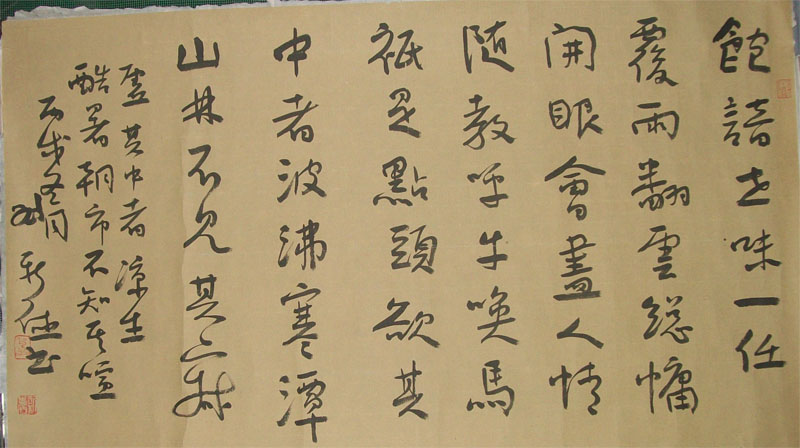 飽諳世味一任
覆雨翻雲總慵
開眼會盡人情
随教呼牛喚馬
祇是點頭欲其
中者波沸寒潭
山林不見其寂
虛其中者凉生
酷暑朝市不知其喧
丙戌冬月
書